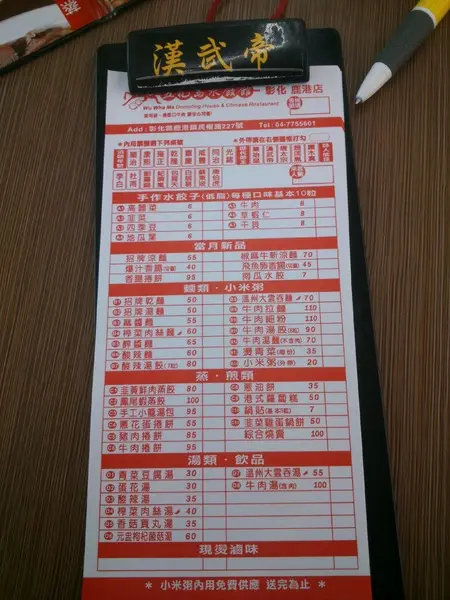 漢武帝
彰化 鹿港店
Wu Wha Ma Dumpling House & Chinese Restaurant
Add: 彰化縣鹿港鎮民權路227號 Tel: 04-7755601
手作水餃子(低脂)每種口味基本10粒
高麗菜 6 牛肉 8
韭菜 6 草蝦仁 8
四季豆 6 干貝 8
地瓜葉 6
當月新品
招牌涼麵 55 椒麻牛新涼麵 70
爆汁香腸 40 飛魚卵香腸 45
香腸捲餅 95 南瓜水餃 7
麵類·小米粥
招牌乾麵 60 溫州大雲吞麵 70
招牌湯麵 50 牛肉拉麵 110
炸醬麵 55 牛肉細粉 110
榨菜肉絲麵 60 牛肉湯餃 90
麻醬麵 60 牛肉湯麵(不含肉) 70
酸辣麵 60 燙青菜(每份) 35
酸辣湯餃 60 小米粥(外帶) 20
蒸·煎類
韭黃鮮肉蒸餃 80 蔥油餅 35
鳳尾蝦蒸餃 100 港式蘿蔔糕 50
手工小籠湯包 95 鍋貼 7
蔥花蛋捲餅 55 韭菜雞蛋鍋餅 50
豬肉捲餅 85 綜合燒賣 100
牛肉捲餅 95
湯類·飲品
青菜豆腐湯 30 溫州大雲吞湯 55
蛋花湯 30 牛肉湯(含肉) 100
酸辣湯 35
榨菜肉絲湯 40
香菇貢丸湯 35
元盅枸杞菌菇湯 60
現燙滷味
* 小米粥內用免費供應 送完為止 *